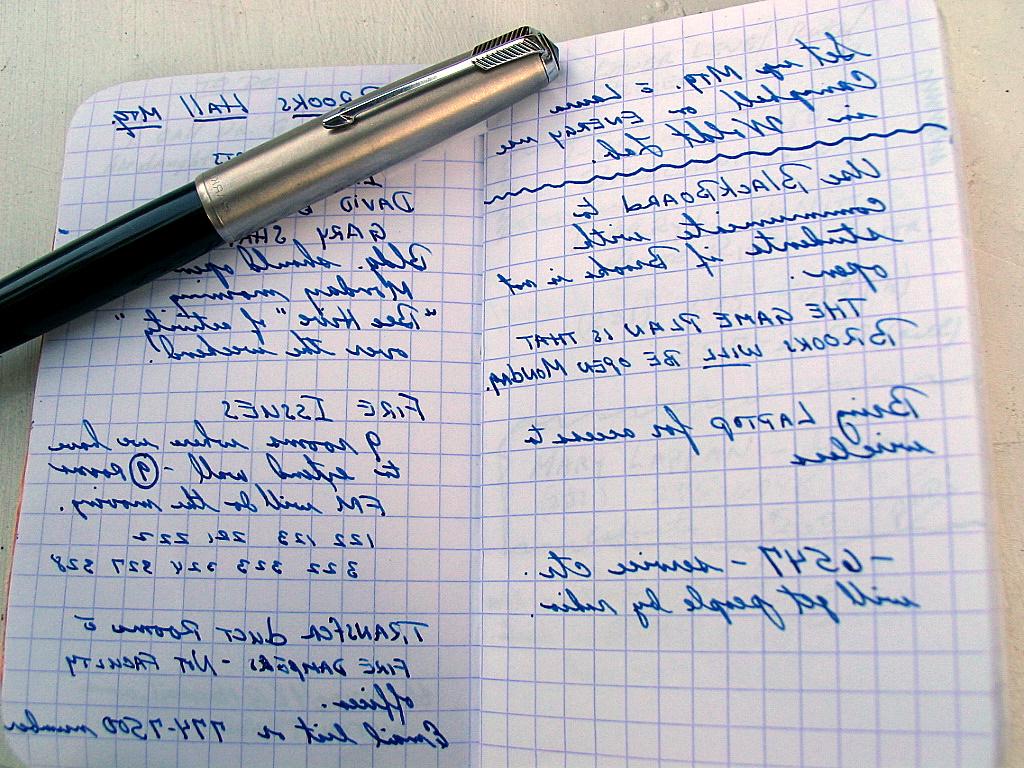 Set up Mtg. c̄ Laura
Campbell on ENERGY use
in Lab.
Use BlackBoard to
communicate with
students if Brooks is not
open.
THE GAME PLAN IS THAT
BROOKS WILL BE OPEN Monday.
Bring LAPTOP for access to
wireless
- 6547 - service ctr.
will get people by radio.
BROOKS HAll MTG.
DAVID
GARY
Bldg. should open
Monday morning
"Bee Hive" of activity"
over the weekend.
FIRE ISSUES
9 rooms where we have
to extend wall - 9 rooms
FM will do the moving.
122 123 221 222
322 323 324 327 328
TRANSFER duct Rooms c̄
FIRE DAMPERS - Not FACULTY
offices.
Email list or 774-7500 number